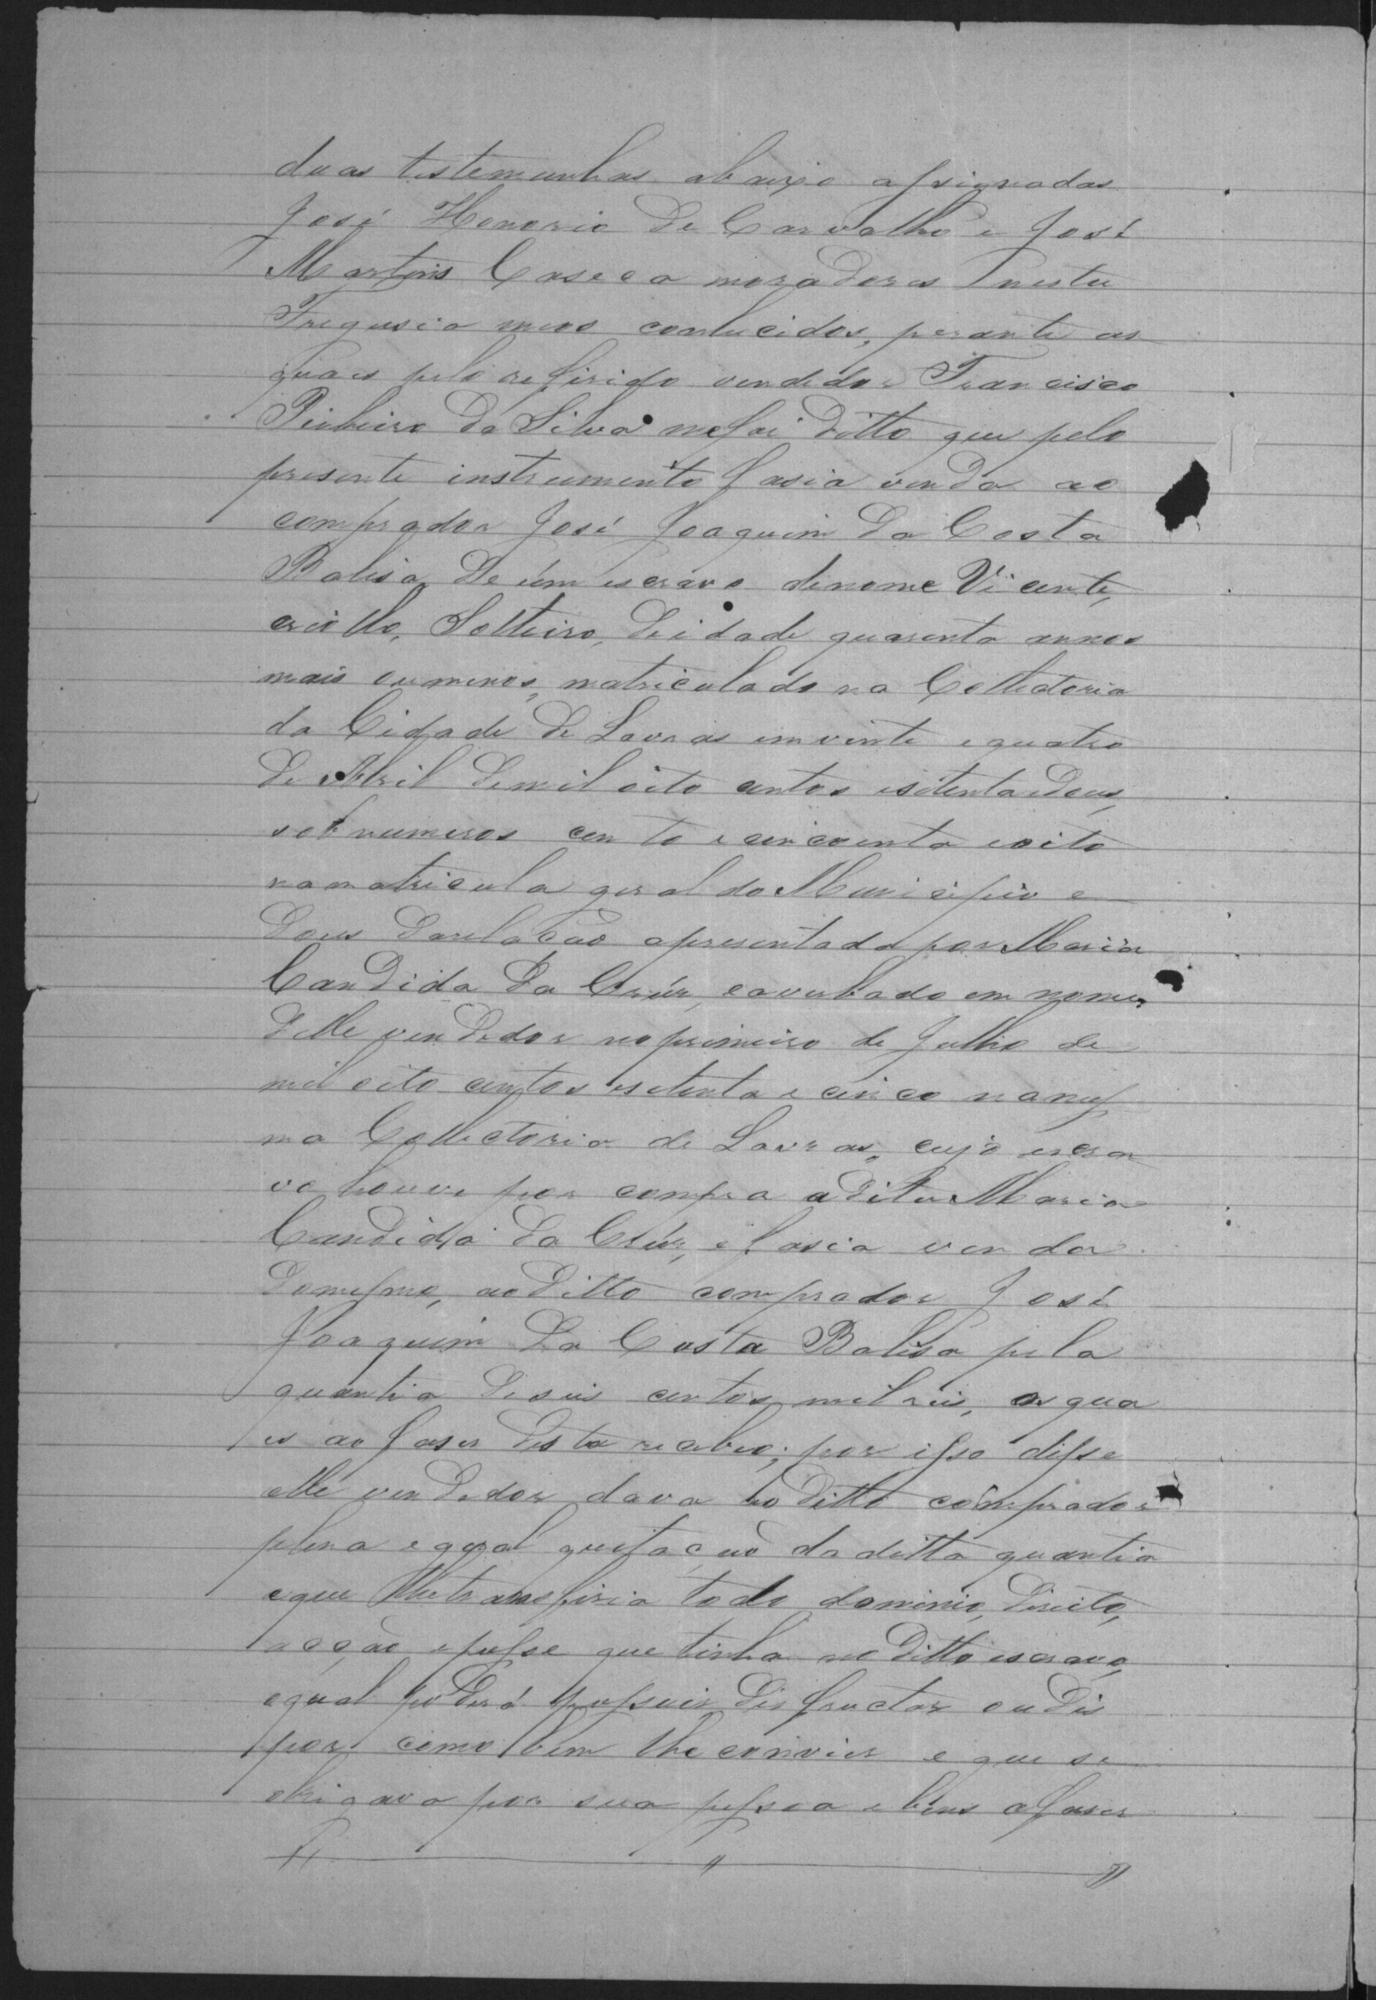 duas testemunhas abaixo assignadas
José Honorio de Carvalho e José
Martins Caseca moradores nesta
Freguesia meos conhecidos, perante as
quaes pelo referido vendedor Francisco
Pinheiro da Silva me foi ditto que pelo
presente instrumento fasia venda ao
comprador José Joaquim da Costa
Balisa de úm escravo de nome Vicente,
criollo, Solteiro, de idade quarenta annos
mais ou menos, matriculado na Collectoria
da Cidade de Lavras em vinte e quatro
de Abril de mil oito centos e setenta e dous,
sob numeros cento e cincoenta e oito
na matricula geral do Municipio e
dous da relação apresentada por Maria
Candida da Crúz, e averbado em nome
delle vendedor no primeiro de Julho de
mil oito centos e setenta e cinco na mes
ma Collectoria de Lavras, cujo escra
vo houve por compra a dita Maria
Candida da Crúz, e fasia venda
do mesmo, ao ditto comprador José
Joaquim da Costa Balisa pela
quantia de seis centos mil reis, os qua
es ao faser desta recebeo; por isso disse
elle vendedor dava ao ditto comprador
plena e geral quitação da ditta quantia
e que lhe transferia todo dominio, direito,
acção e posse que tinha no ditto escravo,
o qual poderá possuir, disfructar ou dis
por como bem lhe convier e que se
obrigava por sua pessoa e bens a faser